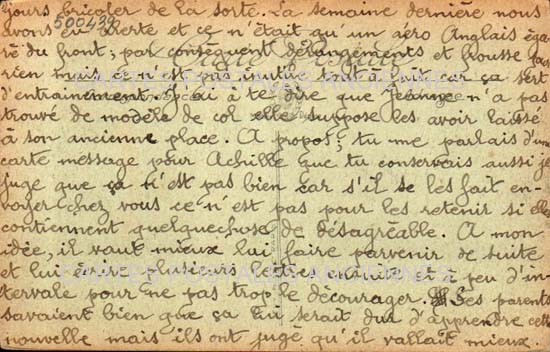 jours bricoler de la sorte. La semaine dernière nous
500439
avons eu alerte et ce n'était qu'un aéro Anglais éga
ré du front, par conséquent dérangements et frousse pour
rien mais ce n'est pas inutile tout à fait car ça sert
d'entrainement. J'ai à te dire que Jeanne n'a pas
trouvé de modèle de col elle suppose les avoir laissé
à son ancienne place. A propos, tu me parlais d'une
carte message pour Achille que tu conservais aussi je
juge que ça n'est pas bien car s'il se les fait en-
voyer chez vous ce n'est pas pour les retenir si elle
contiennent quelquechose de désagréable. A mon
idée, il vaut mieux lui faire parvenir de suite
et lui écrire plusieurs lettres
à peu d'in
tervale pour ne pas trop le décourager. Ses parents
savaient bien que ça lui serait dur d'apprendre cette
nouvelle mais ils ont jugé qu'il vallait mieux